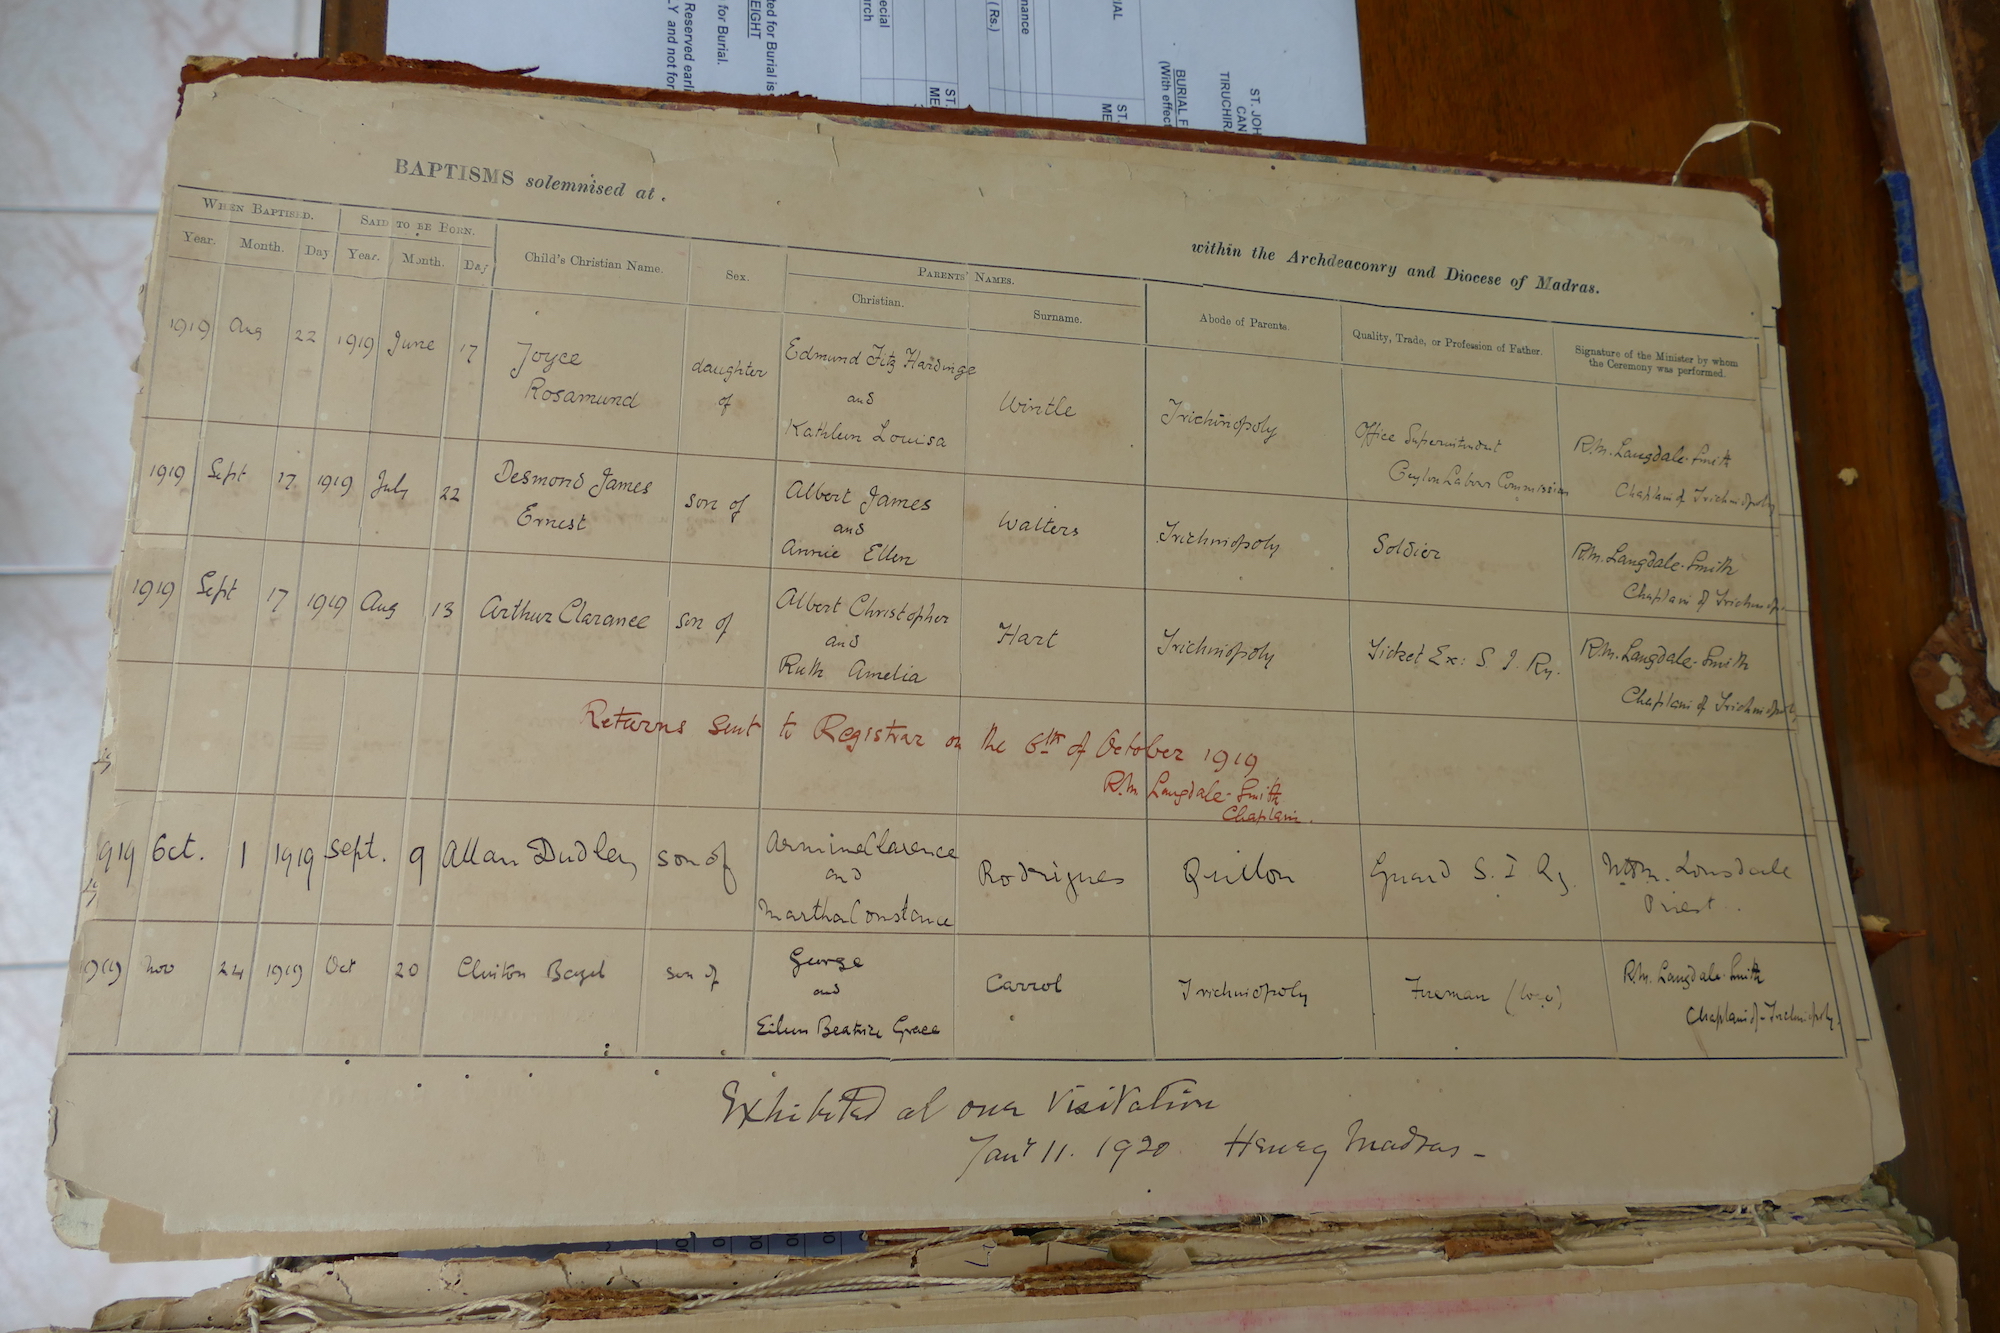 BAPTISMS solemnised at .
within the Archdeaconry and Diocese of Madras.
WHEN BAPTISED. SAID TO BE BORN. Child's Christian Name. Sex. PARENTS' NAMES. Abode of Parents. Quality, Trade, or Profession of Father. Signature of the Minister by whom
the Ceremony was performed.
Year. Month. Day Year. Month. Day Christian. Surname.
1919 Aug 22 1919 June 17 Joyce
Rosamund
daughter
of
Edmund Fitz Hardinge
and
Kathleen Louisa
Wintle
Trichinopoly
Office Superintendent
Ceylon Labour Commission
R.M. Langdale-Smith
Chaplain of Trichinopoly
1919 Sept 17 1919 July 22 Desmond James
Ernest
son of
Albert James
and
Annie Ellen
Walters
Trichinopoly
Soldier
R.M. Langdale-Smith
Chaplain of Trichinop
1919 Sept 17 1919 Aug 13 Arthur Clarance
son of
Albert Christopher
and
Ruth Amelia
Hart
Trichinopoly
Ticket Ex: S I Ry.
R.M. Langdale-Smith
Chaplain of Trichinopoly
Returns sent to Registrar on the 6th of October 1919
R.M Langdale-Smith
Chaplain.
1919 Oct. 1 1919 Sept. 9 Allan Dudley
son of
Clarence
and
Martha Constance
Rodrigues
Quilon
Guard S. I Ry.
Lonsdale
Priest
1919 Nov 24 1919 Oct 20 Clinton
son of
George
and
Eileen Beatrice Grace
Carrol
Trichinopoly
Fireman (loco)
R.M. Langdale-Smith
Chaplain of Trichinopoly
Exhibited at our Visitation
Jany 11. 1920 Henry Madras -
ST. JOH
CAN
TIRUCHIR
BURIAL F
(With effect
ST.
ME
ST.
ME
(Rs.)
nance
ecial
urch
ted for Burial is
EIGHT
for Burial.
Reserved earli
LY and not for